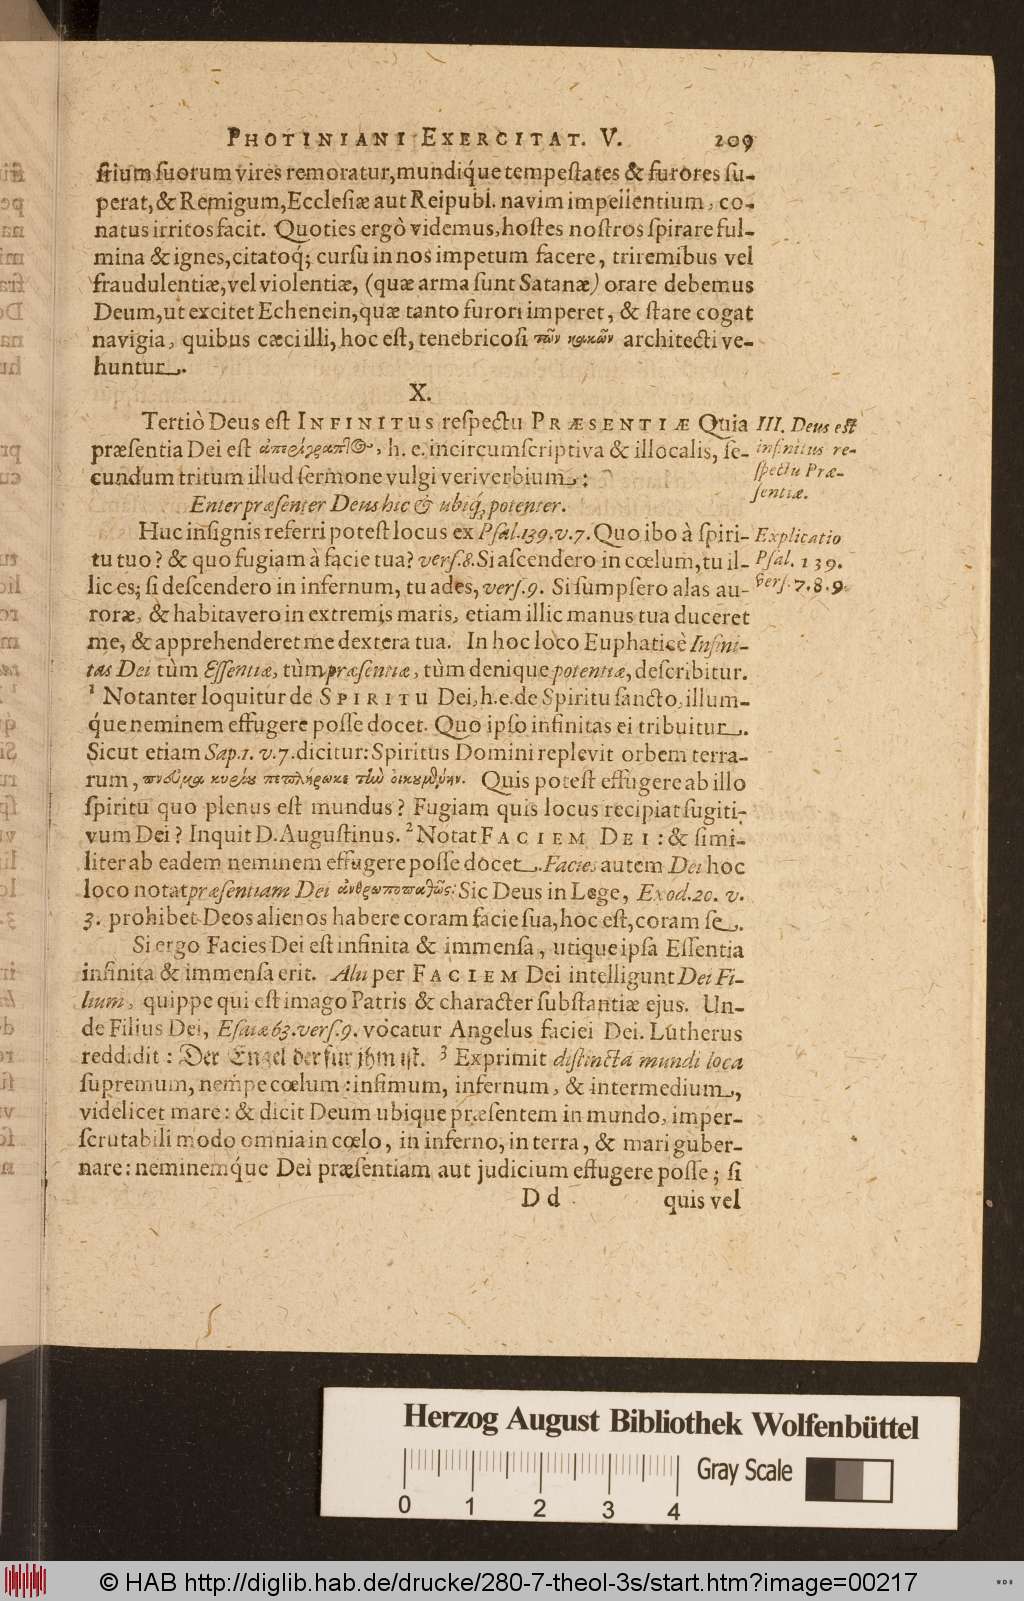 PHOTINIANI EXERCITAT. V. 209
ſtium ſuorum vires remoratur, mundiq́ue tempeſtates & furores ſu-
perat, & Remigum, Eccleſiæ aut Reipubl. navim impellentium, co-
natus irritos facit. Quoties ergò videmus, hoſtes noſtros ſpirare ful-
mina & ignes, citatoq́; curſu in nos impetum facere, triremibus vel
fraudulentiæ, vel violentiæ, (quæ arma ſunt Satanæ) orare debemus
Deum, ut excitet Echenein, quæ tanto furori imperet, & ſtare cogat
navigia, quibus cæci illi, hoc eſt, tenebricoſi τῶν κακῶν architecti ve-
huntur.
X.
Tertiò Deus eſt INFINITUS reſpectu PRÆSENTIÆ Quia
III. Deus eſt
infinitus re-
ſpectu Præ-
ſentiæ.
præſentia Dei eſt ἀπερίγραπτος, h. e. incircumſcriptiva & illocalis, ſe-
cundum tritum illud ſermone vulgi veriverbium:
Enter præſenter Deus hic & ubiq́; potenter.
Huc inſignis referri poteſt locus ex Pſal. 139. v. 7. Quo ibo à ſpiri-
Explicatio
Pſal. 139.
verſ. 7. 8. 9.
tu tuo? & quo fugiam à facie tua? verſ. 8. Si aſcendero in cœlum, tu il-
lic es; ſi deſcendero in infernum, tu ades, verſ. 9. Si ſumpſero alas au-
roræ, & habitavero in extremis maris, etiam illic manus tua duceret
me, & apprehenderet me dextera tua. In hoc loco Euphaticè Infini-
tas Dei tùm Eſſentiæ, tùm præſentiæ, tùm denique potentiæ, deſcribitur.
1 Notanter loquitur de SPIRITU Dei, h. e. de Spiritu ſancto, illum-
q́ue neminem effugere poſſe docet. Quo ipſo infinitas ei tribuitur.
Sicut etiam Sap. 1. v. 7. dicitur: Spiritus Domini replevit orbem terra-
rum, πνεῦμα κυρίου πεπλήρωκε τὴν οἰκουμένην. Quis poteſt effugere ab illo
ſpiritu quo plenus eſt mundus? Fugiam quis locus recipiat fugiti-
vum Dei? Inquit D. Auguſtinus. 2 Notat FACIEM DEI: & ſimi-
liter ab eadem neminem effugere poſſe docet. Facies autem Dei hoc
loco notat præſentiam Dei ἀνθρωποπαθῶς: Sic Deus in Lege, Exod. 20. v.
3. prohibet Deos alienos habere coram facie ſua, hoc eſt, coram ſe.
Si ergo Facies Dei eſt infinita & immenſa, utique ipſa Eſſentia
infinita & immenſa erit. Alii per FACIEM Dei intelligunt Dei Fi-
lium, quippe qui eſt imago Patris & character ſubſtantiæ ejus. Un-
de Filius Dei, Eſaiæ 63. verſ. 9. vocatur Angelus faciei Dei. Lutherus
reddidit: Der Engel der fur jhm iſt. 3 Exprimit diſtincta mundi loca
ſupremum, nempe cœlum: infimum, infernum, & intermedium,
videlicet mare: & dicit Deum ubique præſentem in mundo, imper-
ſcrutabili modo omnia in cœlo, in inferno, in terra, & mari guber-
nare: neminemq́ue Dei præſentiam aut judicium effugere poſſe; ſi
D d quis vel
Herzog August Bibliothek Wolfenbüttel
Gray Scale
0 1 2 3 4
© HAB http://diglib.hab.de/drucke/280-7-theol-3s/start.htm?image=00217